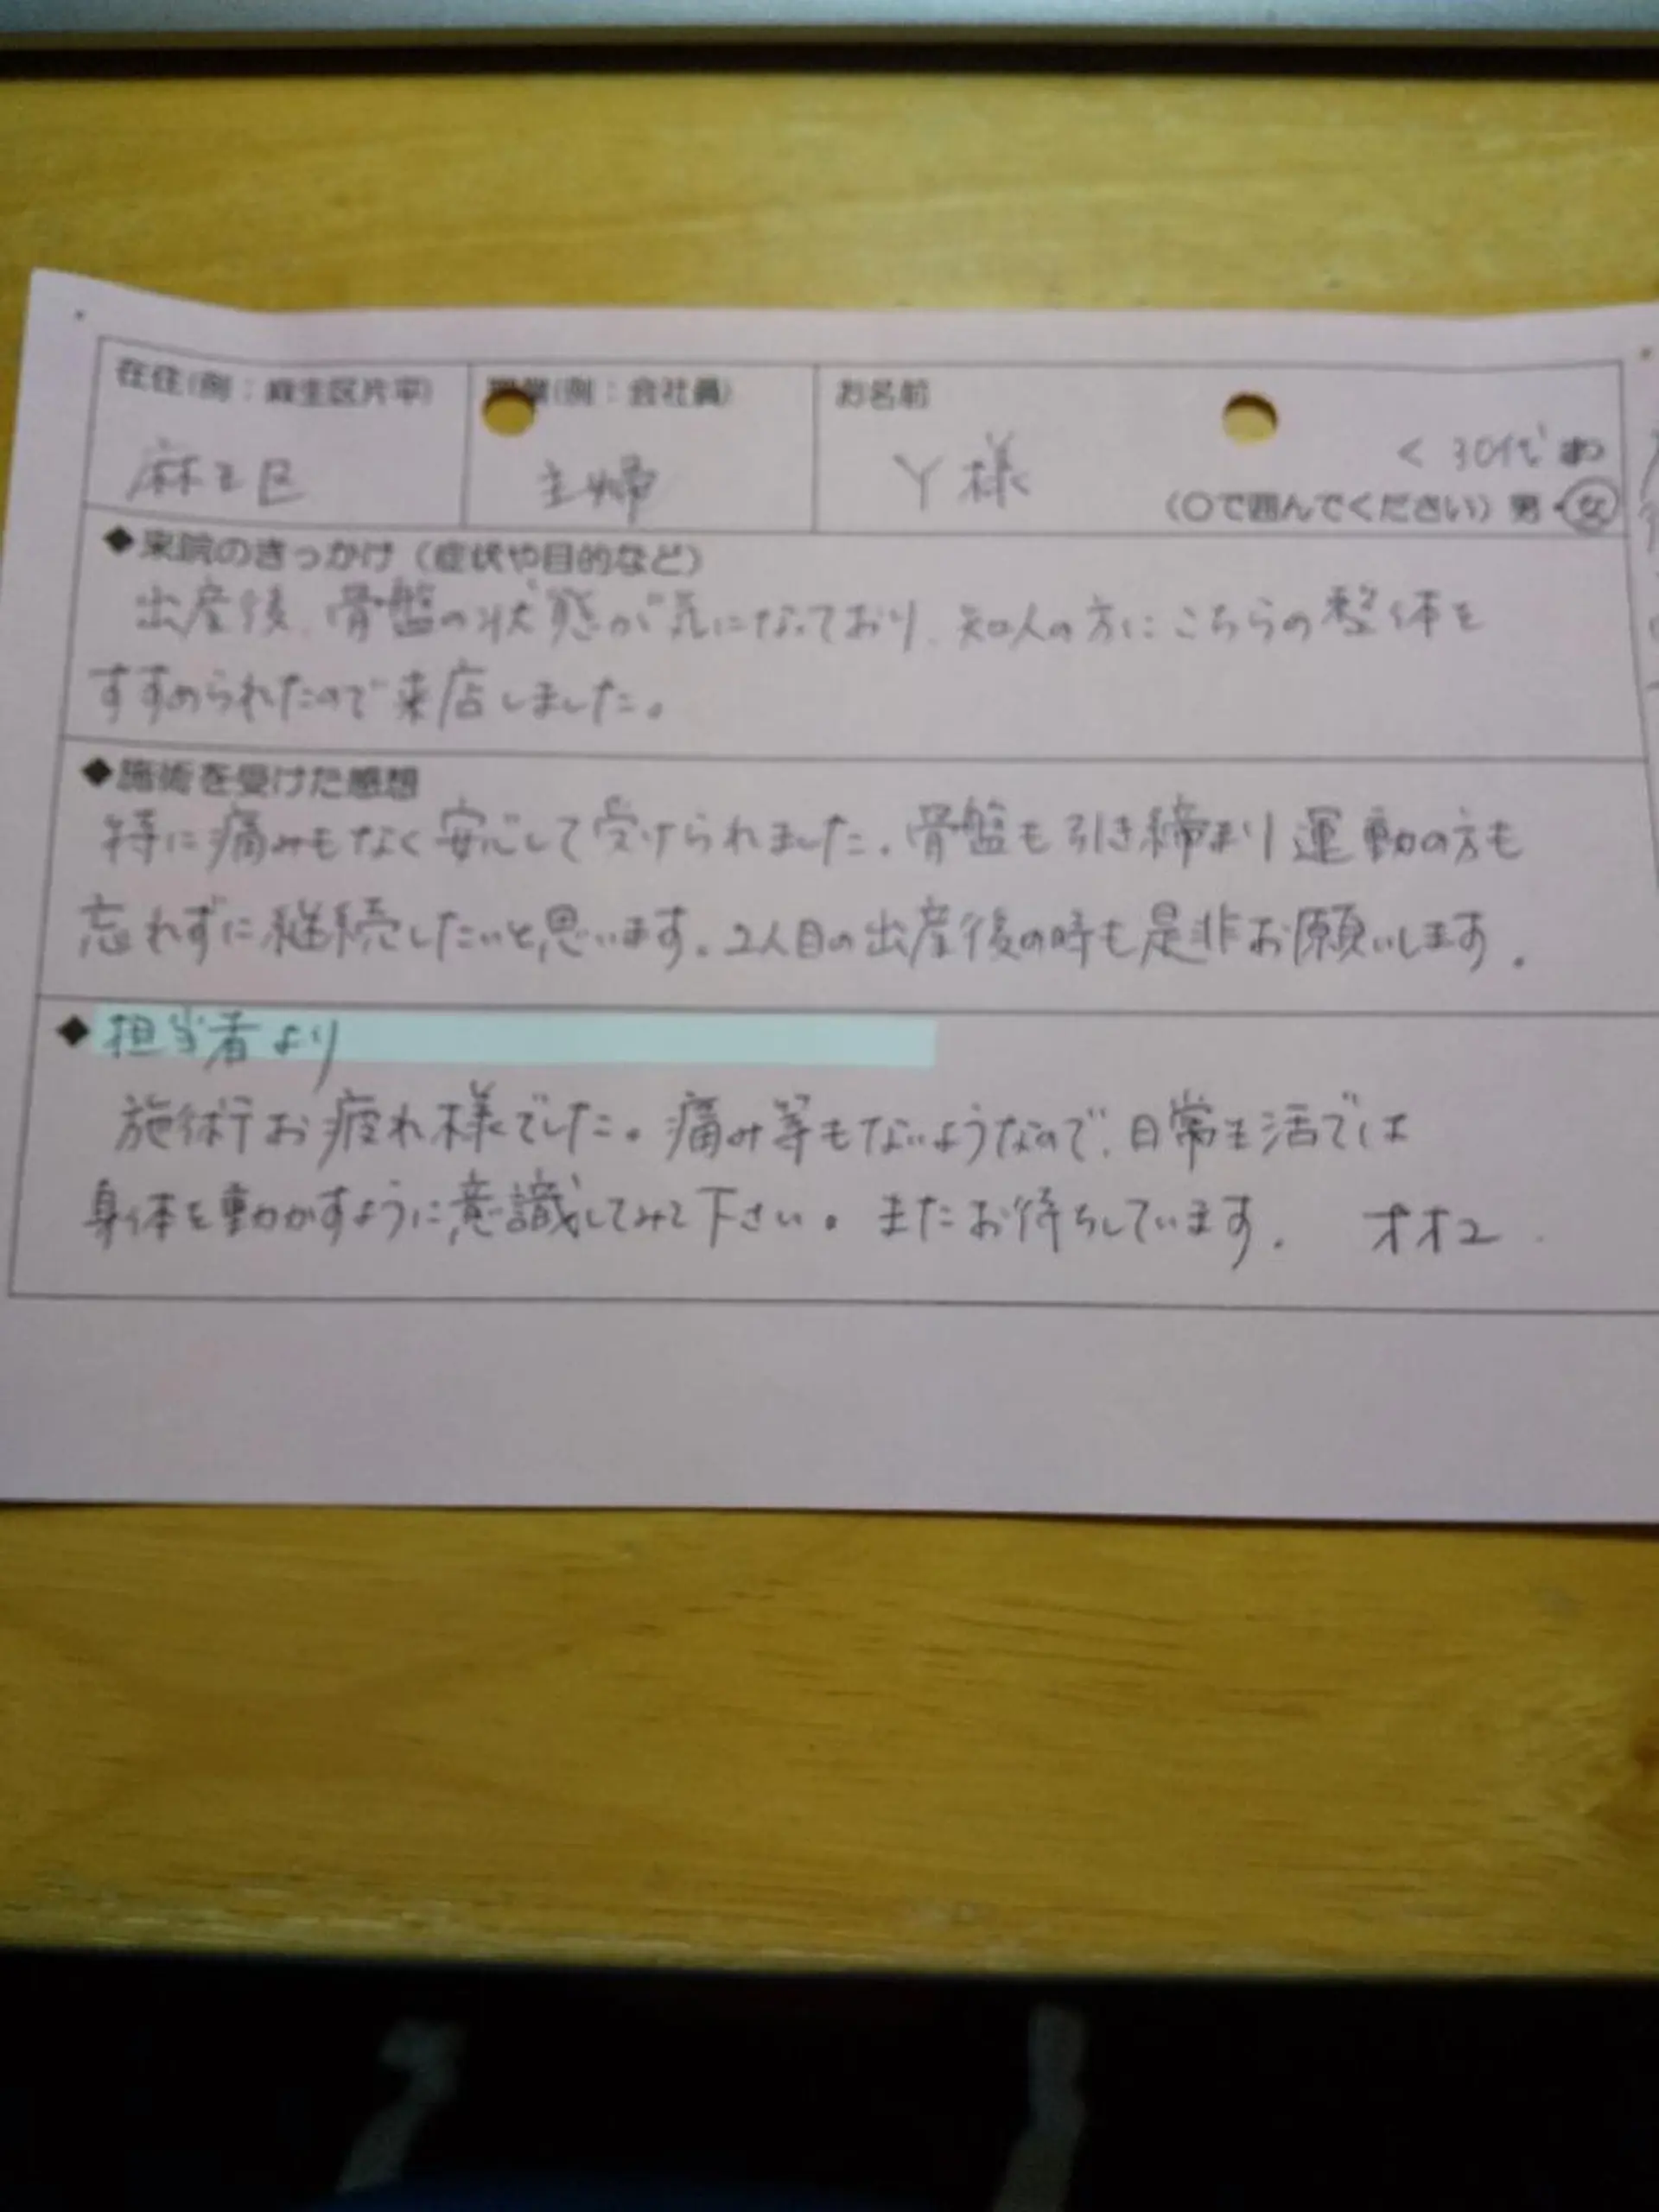 在住(例：麻生区片平) 職業(例：会社員) お名前
麻生区 主婦 Y様 <30代
(〇で囲んでください) 男・女
◆来院のきっかけ（症状や目的など）
出産後、骨盤の状態が気になっており、知人の方にこちらの整体を
すすめられたので来店しました。
◆施術を受けた感想
特に痛みもなく安心して受けられました。骨盤も引き締まり運動の方も
忘れずに継続したいと思います。2人目の出産後の時も是非お願いします。
◆担当者より
施術お疲れ様でした。痛み等もないようなので、日常生活では
身体を動かすように意識してみて下さい。またお待ちしています。